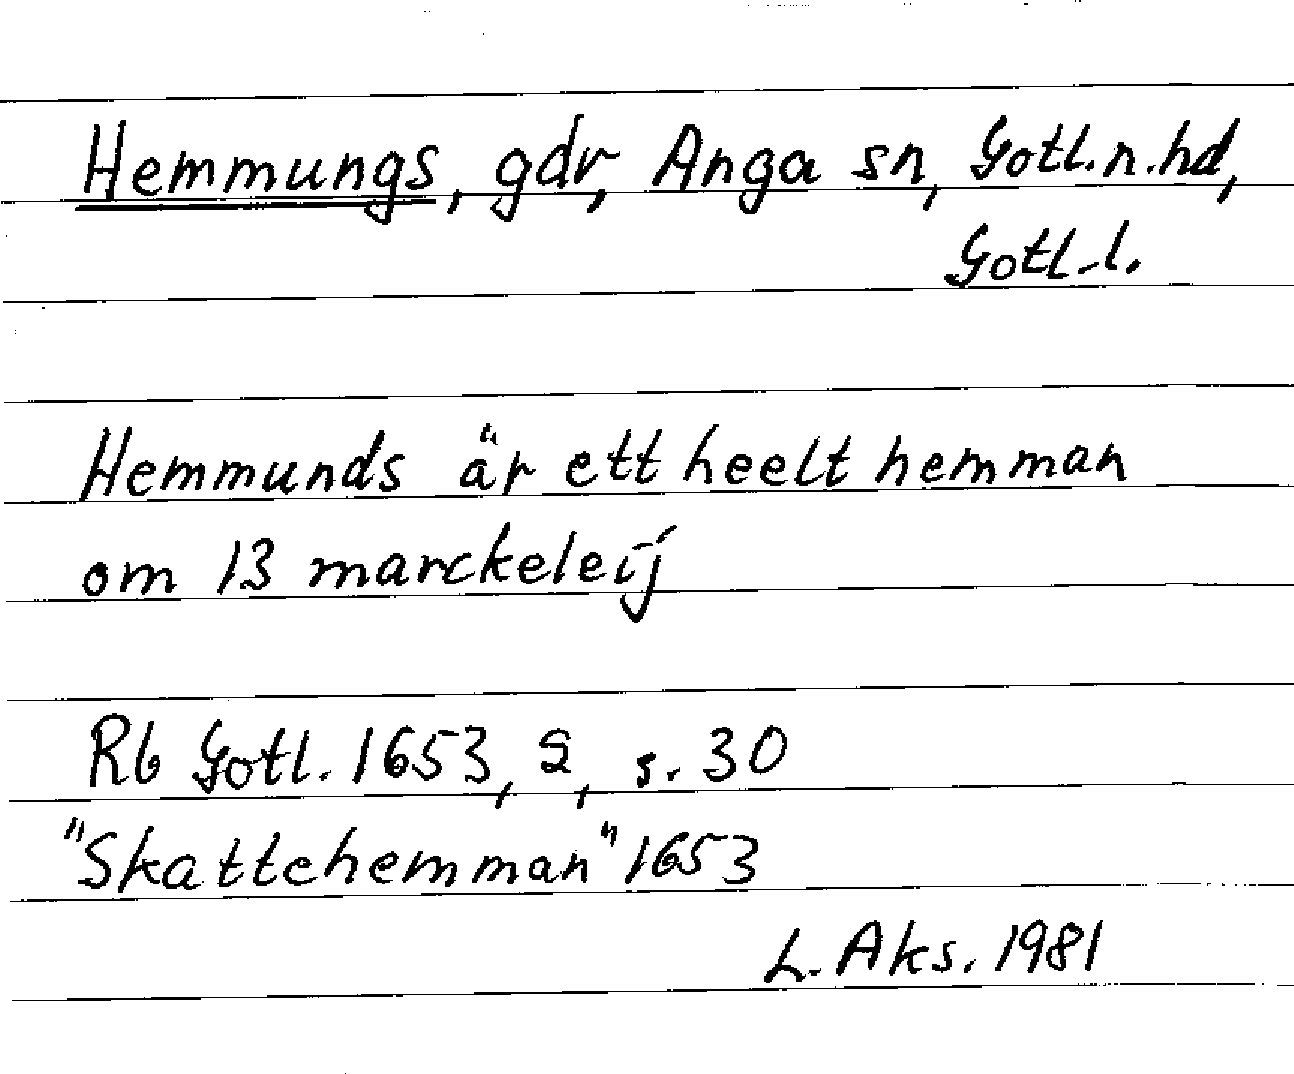 Hemmungs, gdr, Anga sn, Gotl.n.hd,
Gotl.l.
Hemmunds är ett heelt hemman
om 13 marckeleij
Rb Gotl. 1653, 2, s. 30
"Skattehemman" 1653
L. Aks. 1981